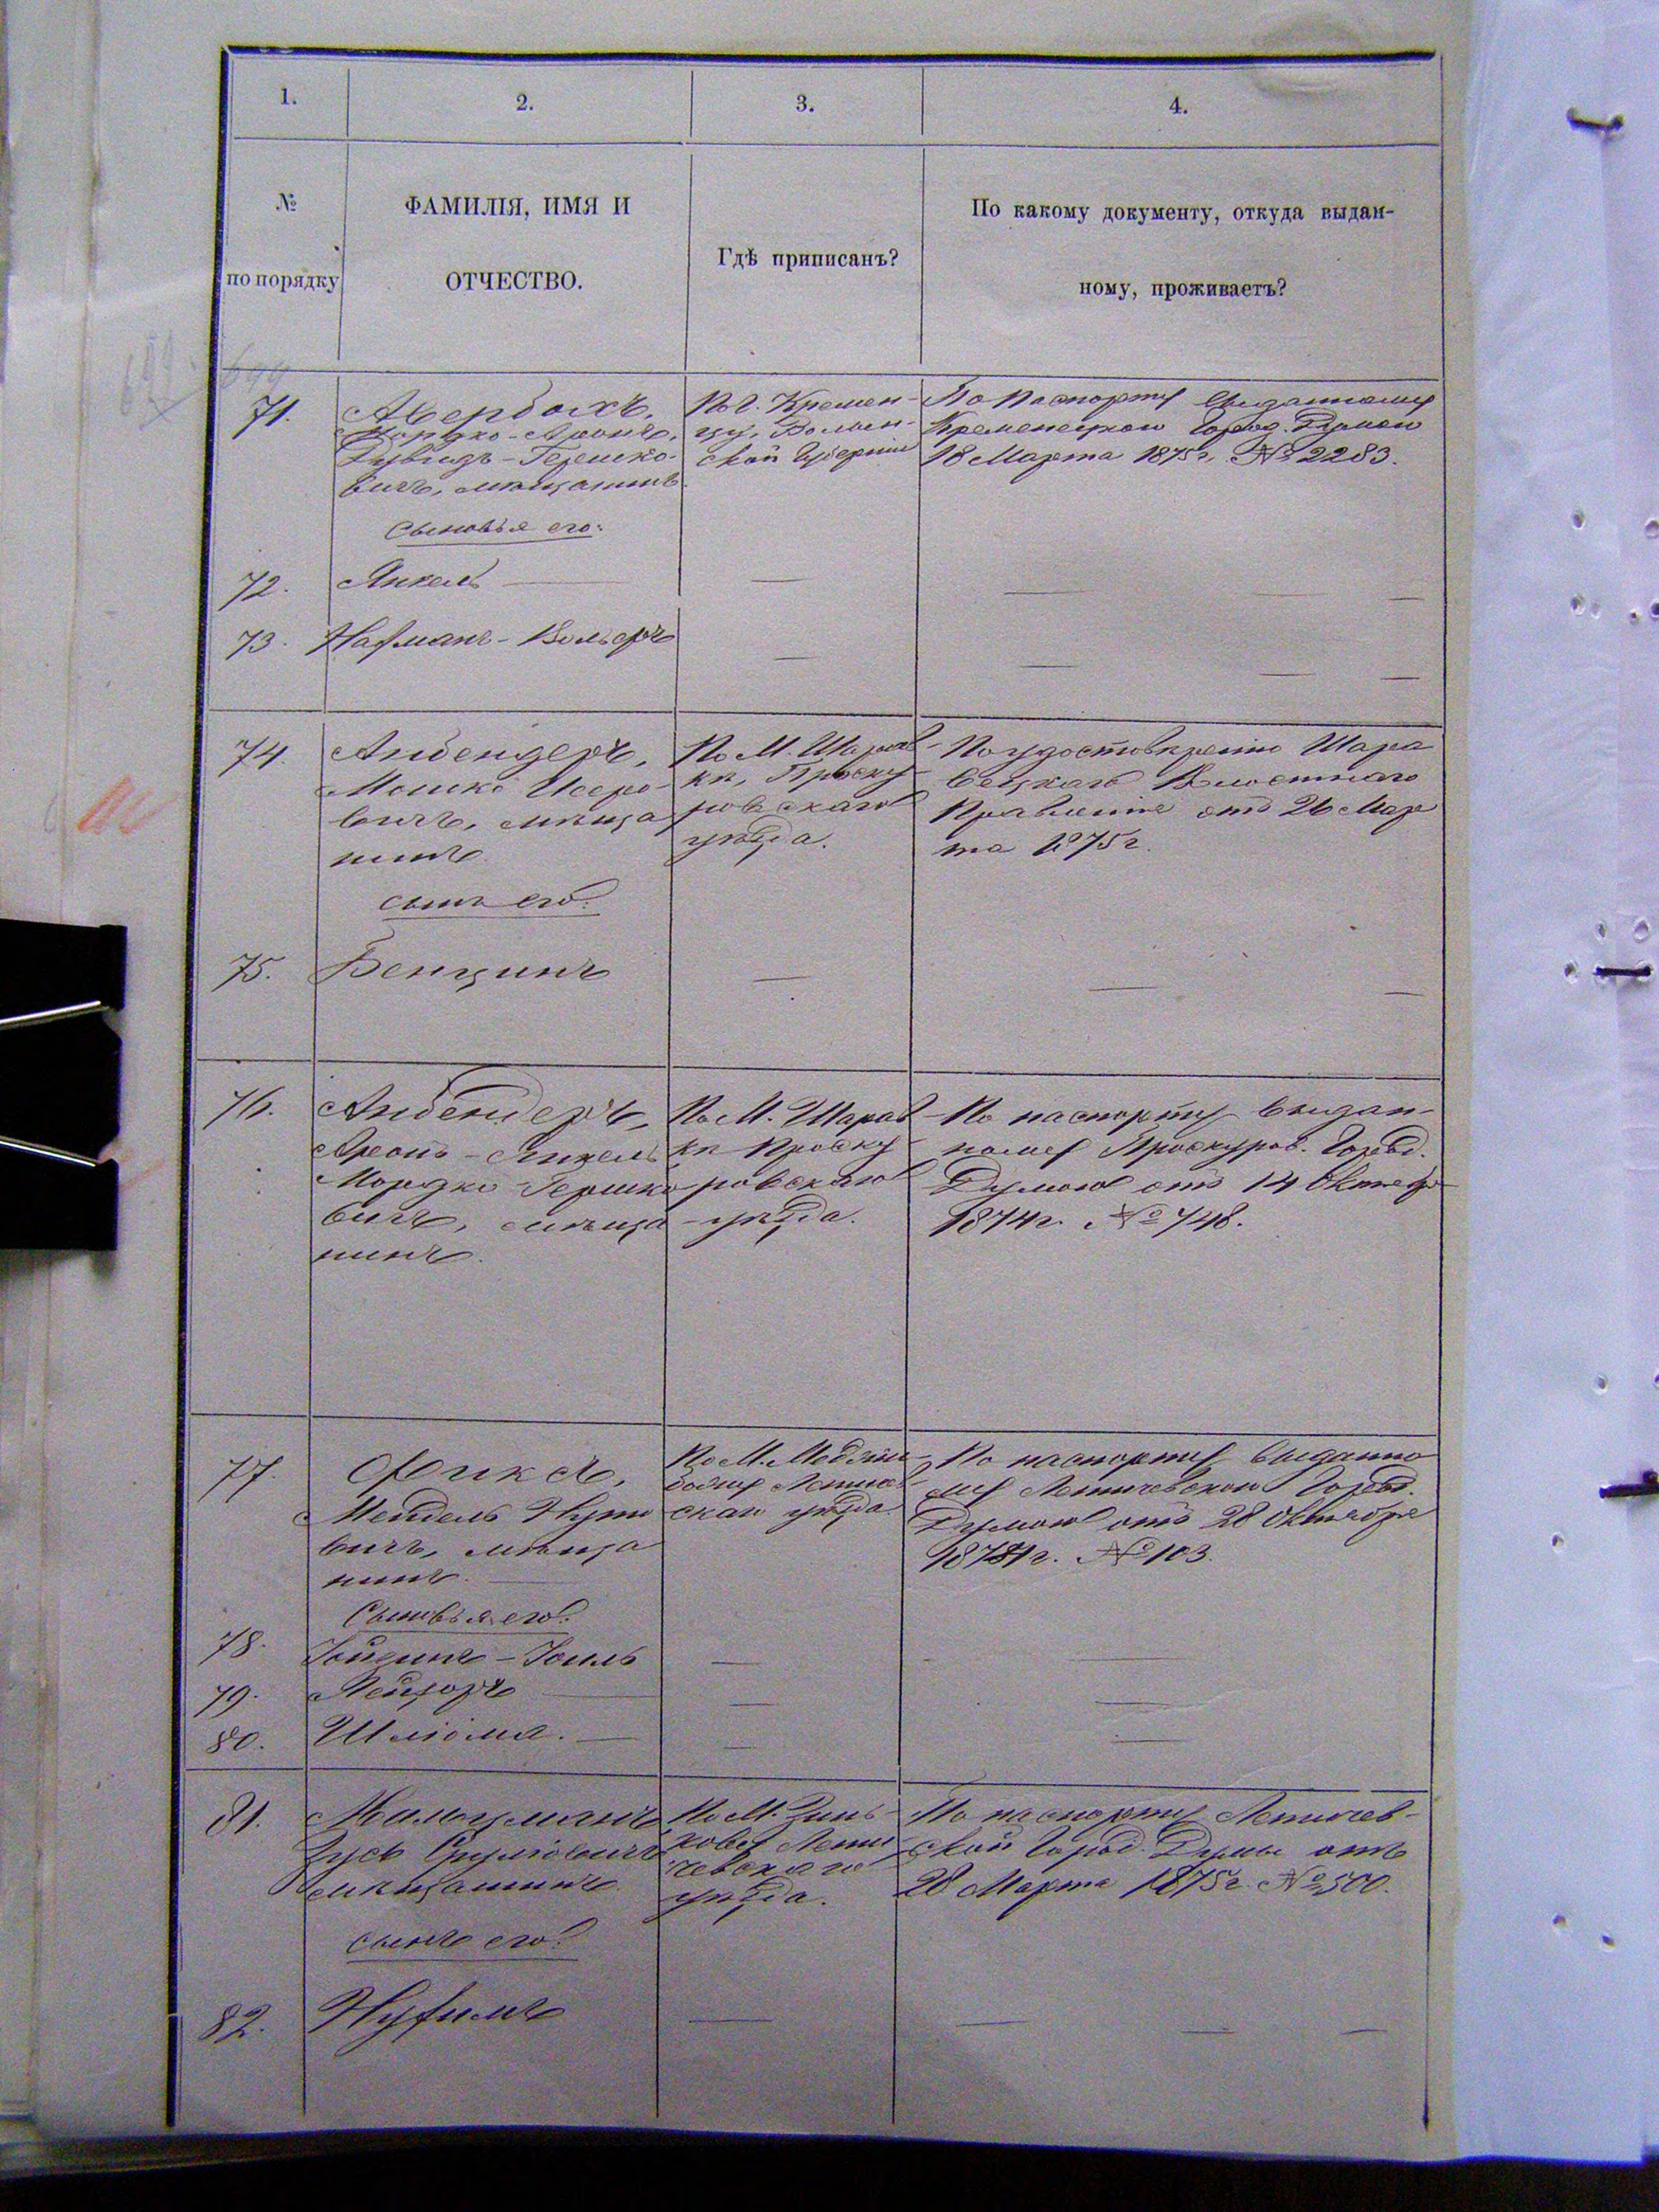 1. 2. 3. 4.
№
по порядку
ФАМИЛІЯ, ИМЯ И
ОТЧЕСТВО.
Гдѣ приписанъ?
По какому документу, откуда выдан-
ному, проживаетъ?
71.
Авербахъ,
Мордко-Аронъ,
Дувидъ-Гершко-
вичъ, мѣщанинъ
По г. Кремен-
цу, Волын-
ской Губерніи
По паспорту выданному
Кременецкою Город. Думою
18 Марта 1875 г. № 2283.
Сыновья его:
72. Янкель
73. Нахманъ-Вольфъ
74.
Айбендеръ,
Мошко Иосро-
вичъ, мѣща
нинъ
По М. Шарав-
кѣ, Проску
ровскаго
уѣзда.
По удостовѣренію Шара
вецкаго Волостнаго
Правленія отъ 26 Мар
та 1875 г.
сынъ его:
75. Бенцинъ
76.
Айбендеръ,
Аронъ-Янкель
Мордко-Гершко
вичъ, мѣща
нинъ.
По М. Шарав-
кѣ Проску
ровскаго
уѣзда.
По паспорту выдан-
ному Проскуров. Город.
Думою отъ 14 Октябр
1874 г. № 748.
77.
Фиксъ,
Мендель
вичъ, мѣща
нинъ.
По М. Меджи
божу Летичев
скаго уѣзда
По паспорту выданно
му Летичевскою Город.
Думою отъ 28 Октября
1874 г. № 103.
Сыновья его:
78. Иоиль
79. Лейзоръ
80. Шліома.
81.
Зусь Сруліовичъ
мѣщанинъ.
По М. Зинь-
кову Лети
чевскаго
уѣзда.
По паспорту Летичев-
ской Город. Думы отъ
28 Марта 1875 г. № 500.
сынъ его:
82. Нухимъ